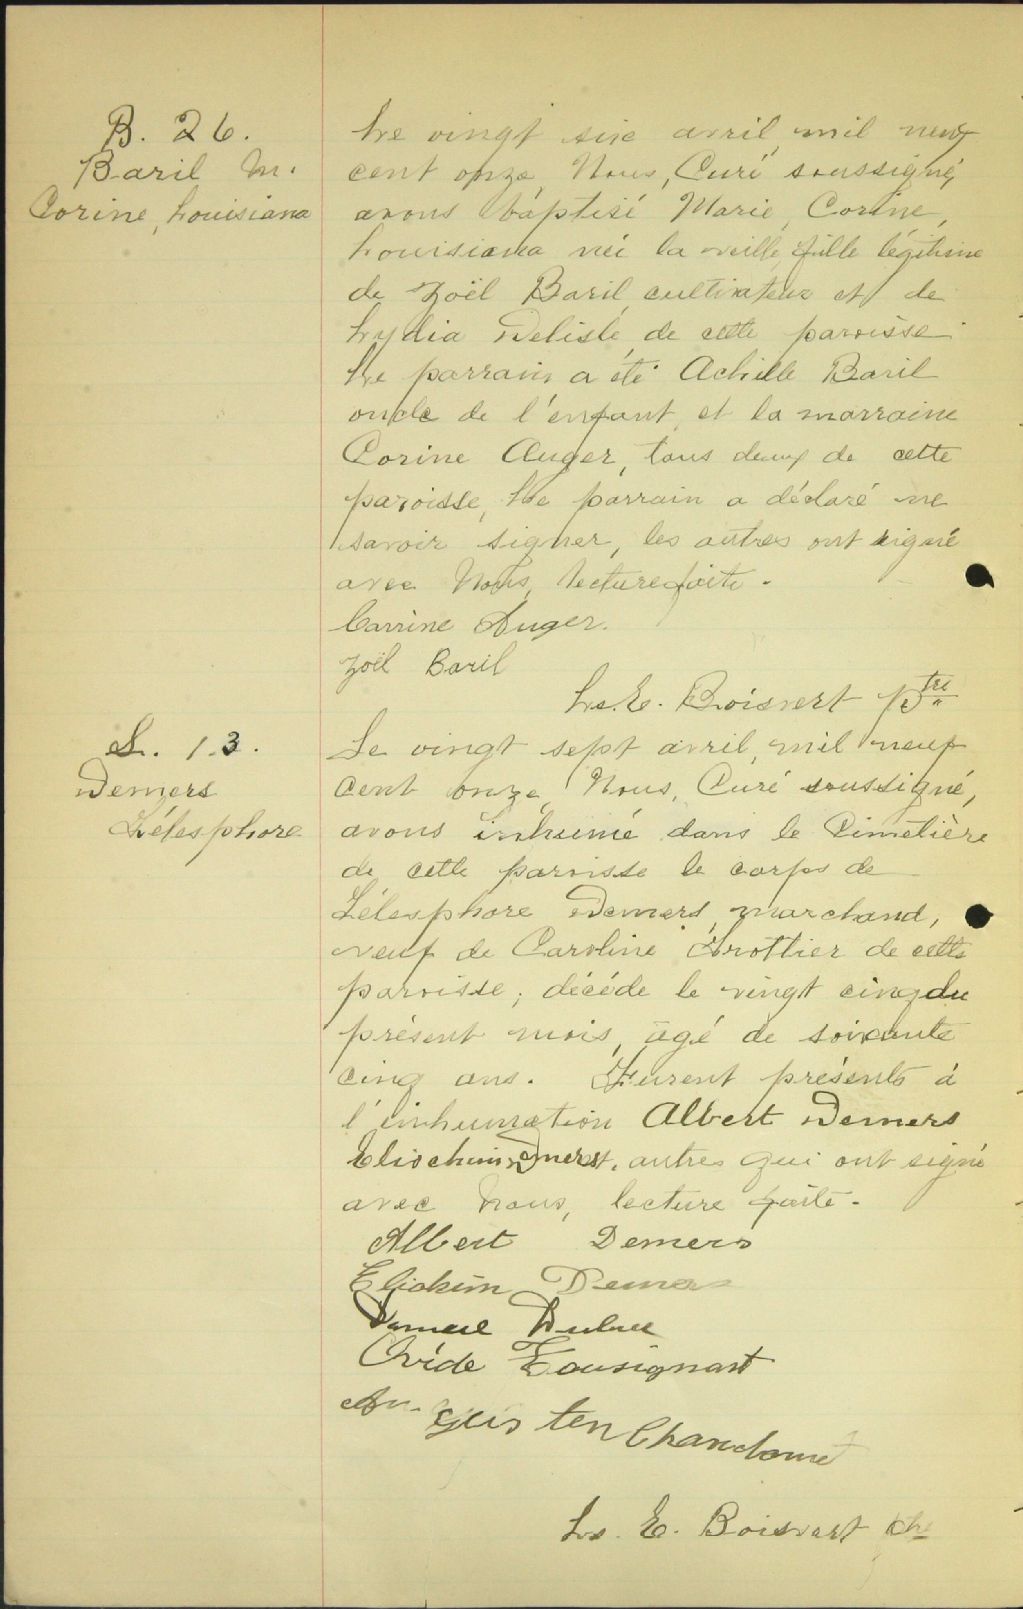 B. 26.
Baril M.
Corine, Louisiana
Le vingt six avril, mil neuf
cent onze, Nous, Curé soussigné,
avons baptisé Marie, Corine,
Louisiana née la veille, fille légitime
de Zoël Baril, cultivateur et de
Lydia Delisle, de cette paroisse.
Le parrain a été Achille Baril
oncle de l'enfant, et la marraine
Corine Auger, tous deux de cette
paroisse, Le parrain a déclaré ne
savoir signer, les autres ont signé
avec Nous, lecture faite.
Corrine Auger.
Zoël Baril
Ls. E. Boisvert Ptre
S. 13.
Demers
Télesphore
Le vingt sept avril, mil neuf
cent onze, Nous, Curé soussigné,
avons inhumé dans le Cimetière
de cette paroisse le corps de
Télesphore Demers, marchand,
veuf de Caroline Trottier de cette
paroisse; décédé le vingt cinq du
présent mois, âgé de soixante
cinq ans. Furent présents à
l'inhumation Albert Demers
autres qui ont signé
avec Nous, lecture faite.
Albert Demers
Eliakim Demers
Ovide Tousignant
Chandonnet
Ls. E. Boisvert